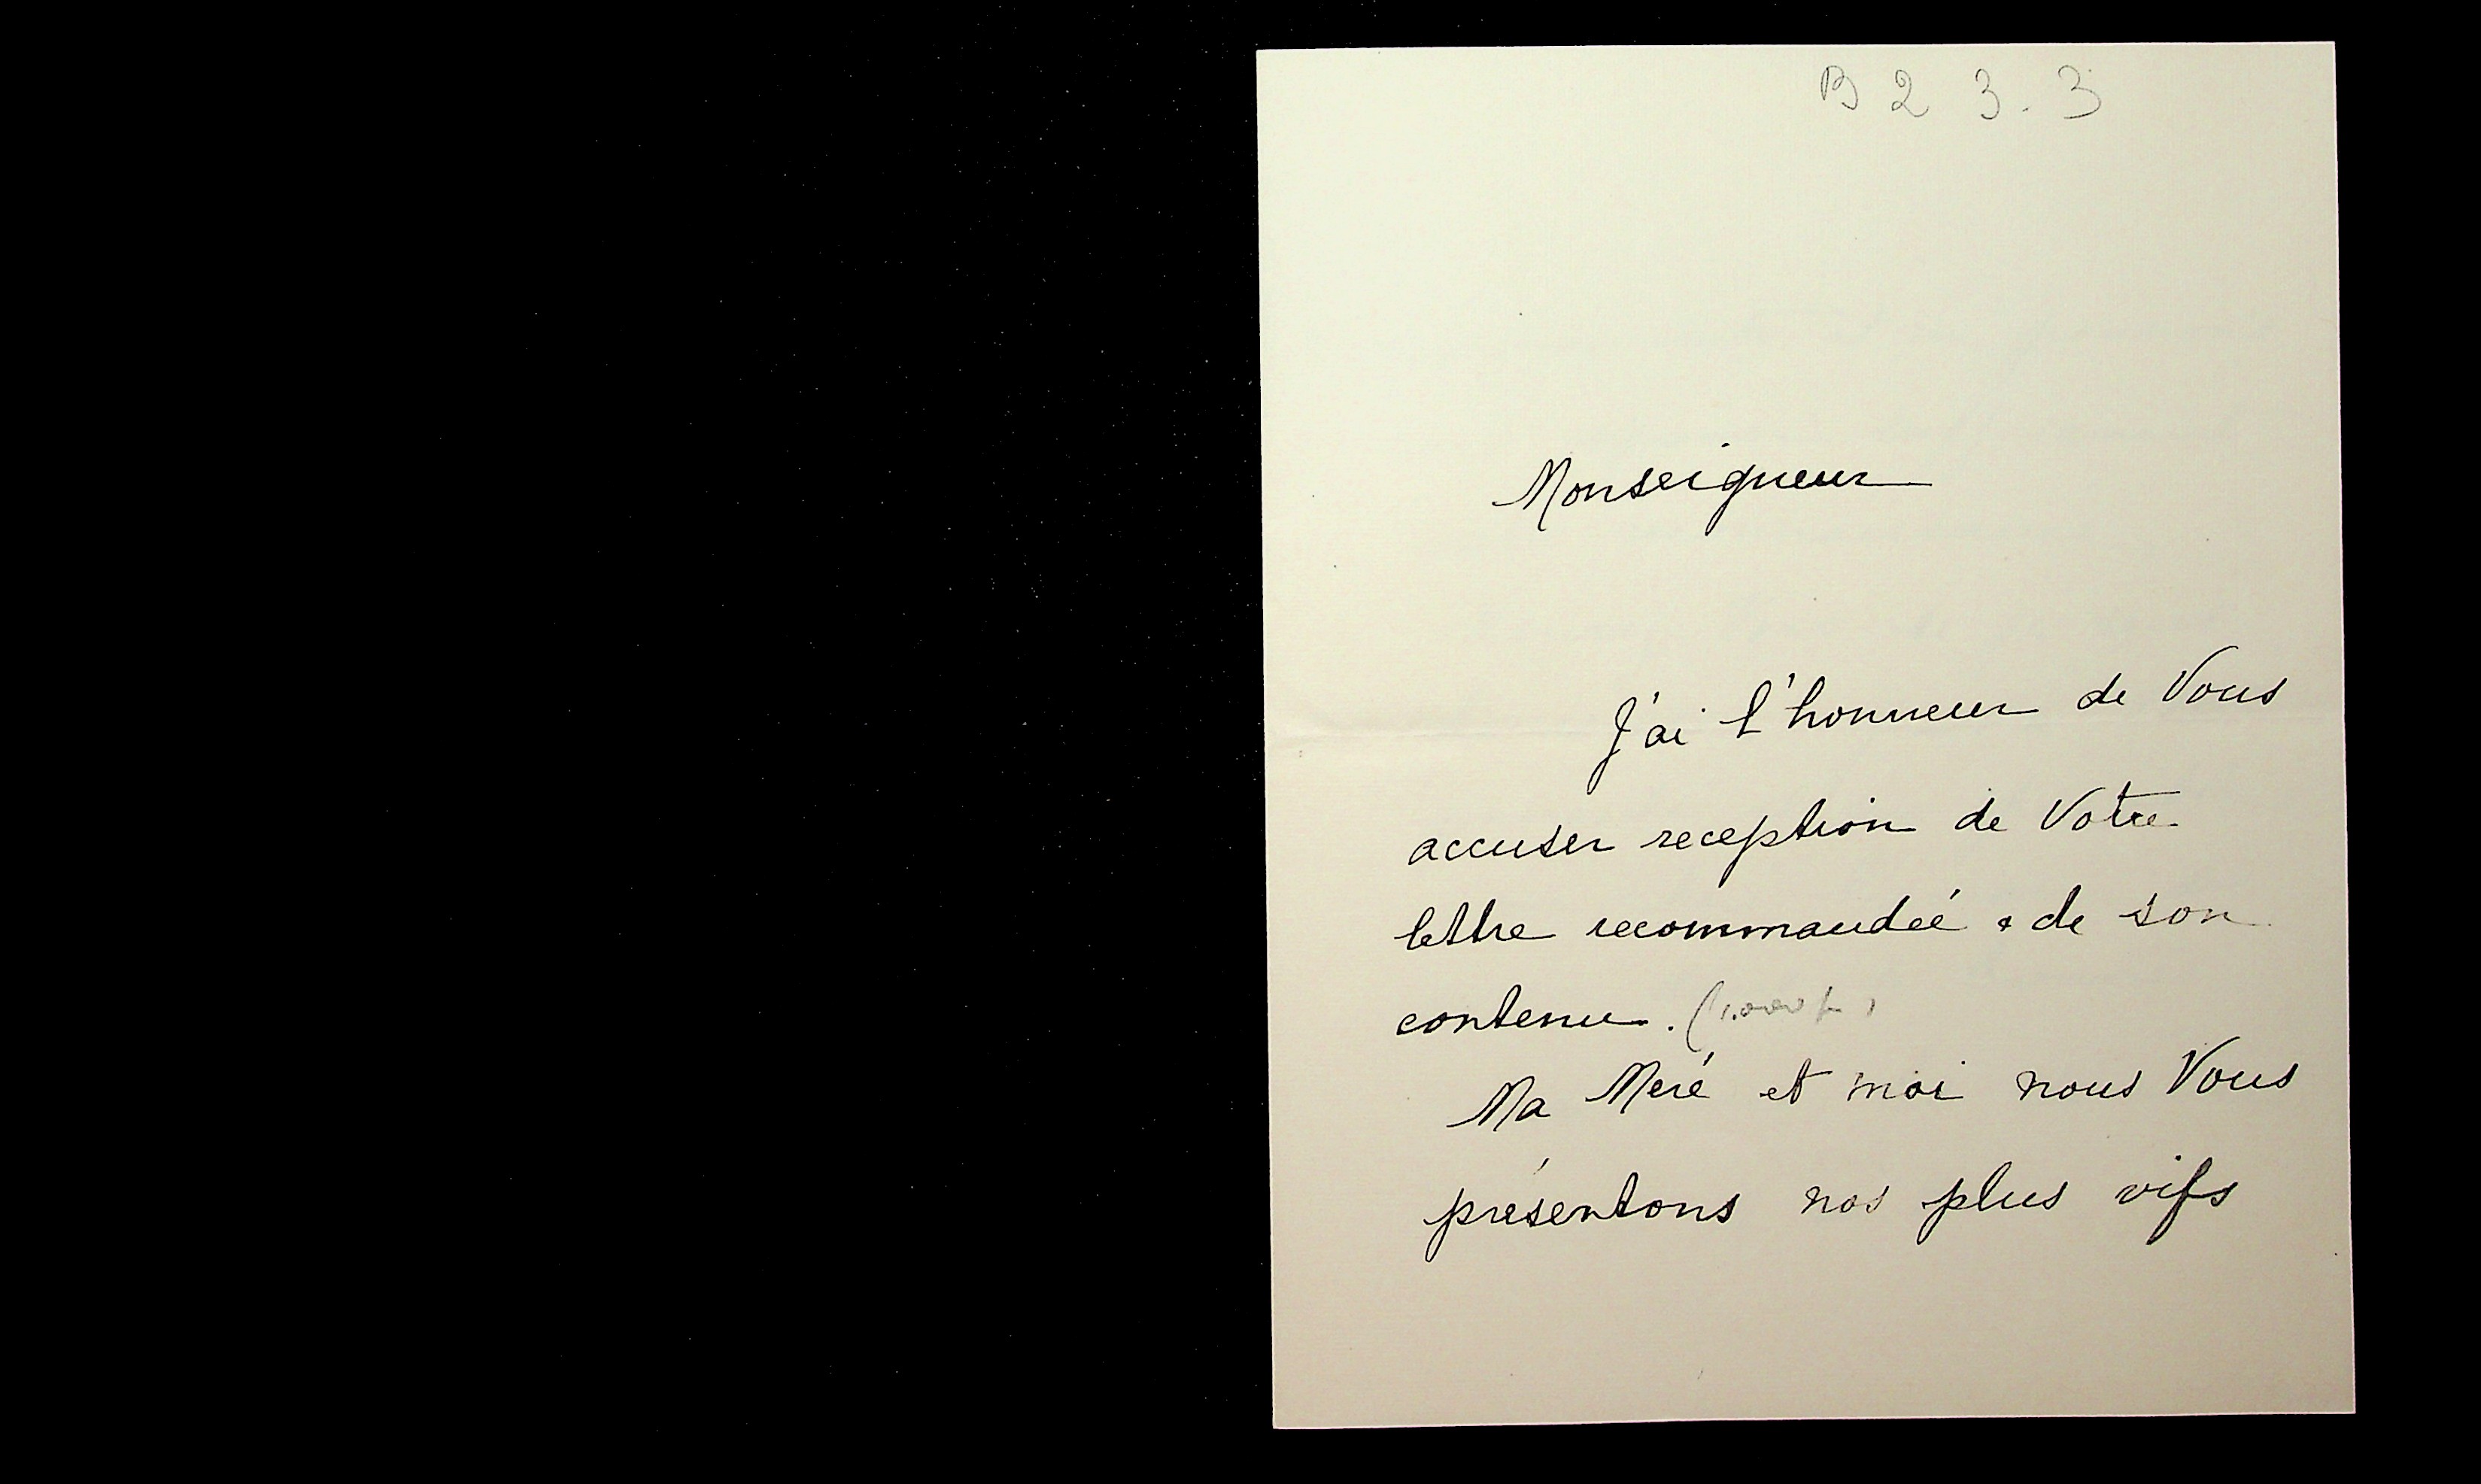 B 2 3.3
Monseigneur
J'ai l'honneur de Vous
accuser reception de Votre
lettre recommandeé & de son
contenu. (1.000 f)
Ma Meré et moi nous Vous
présentons nos plus vifs